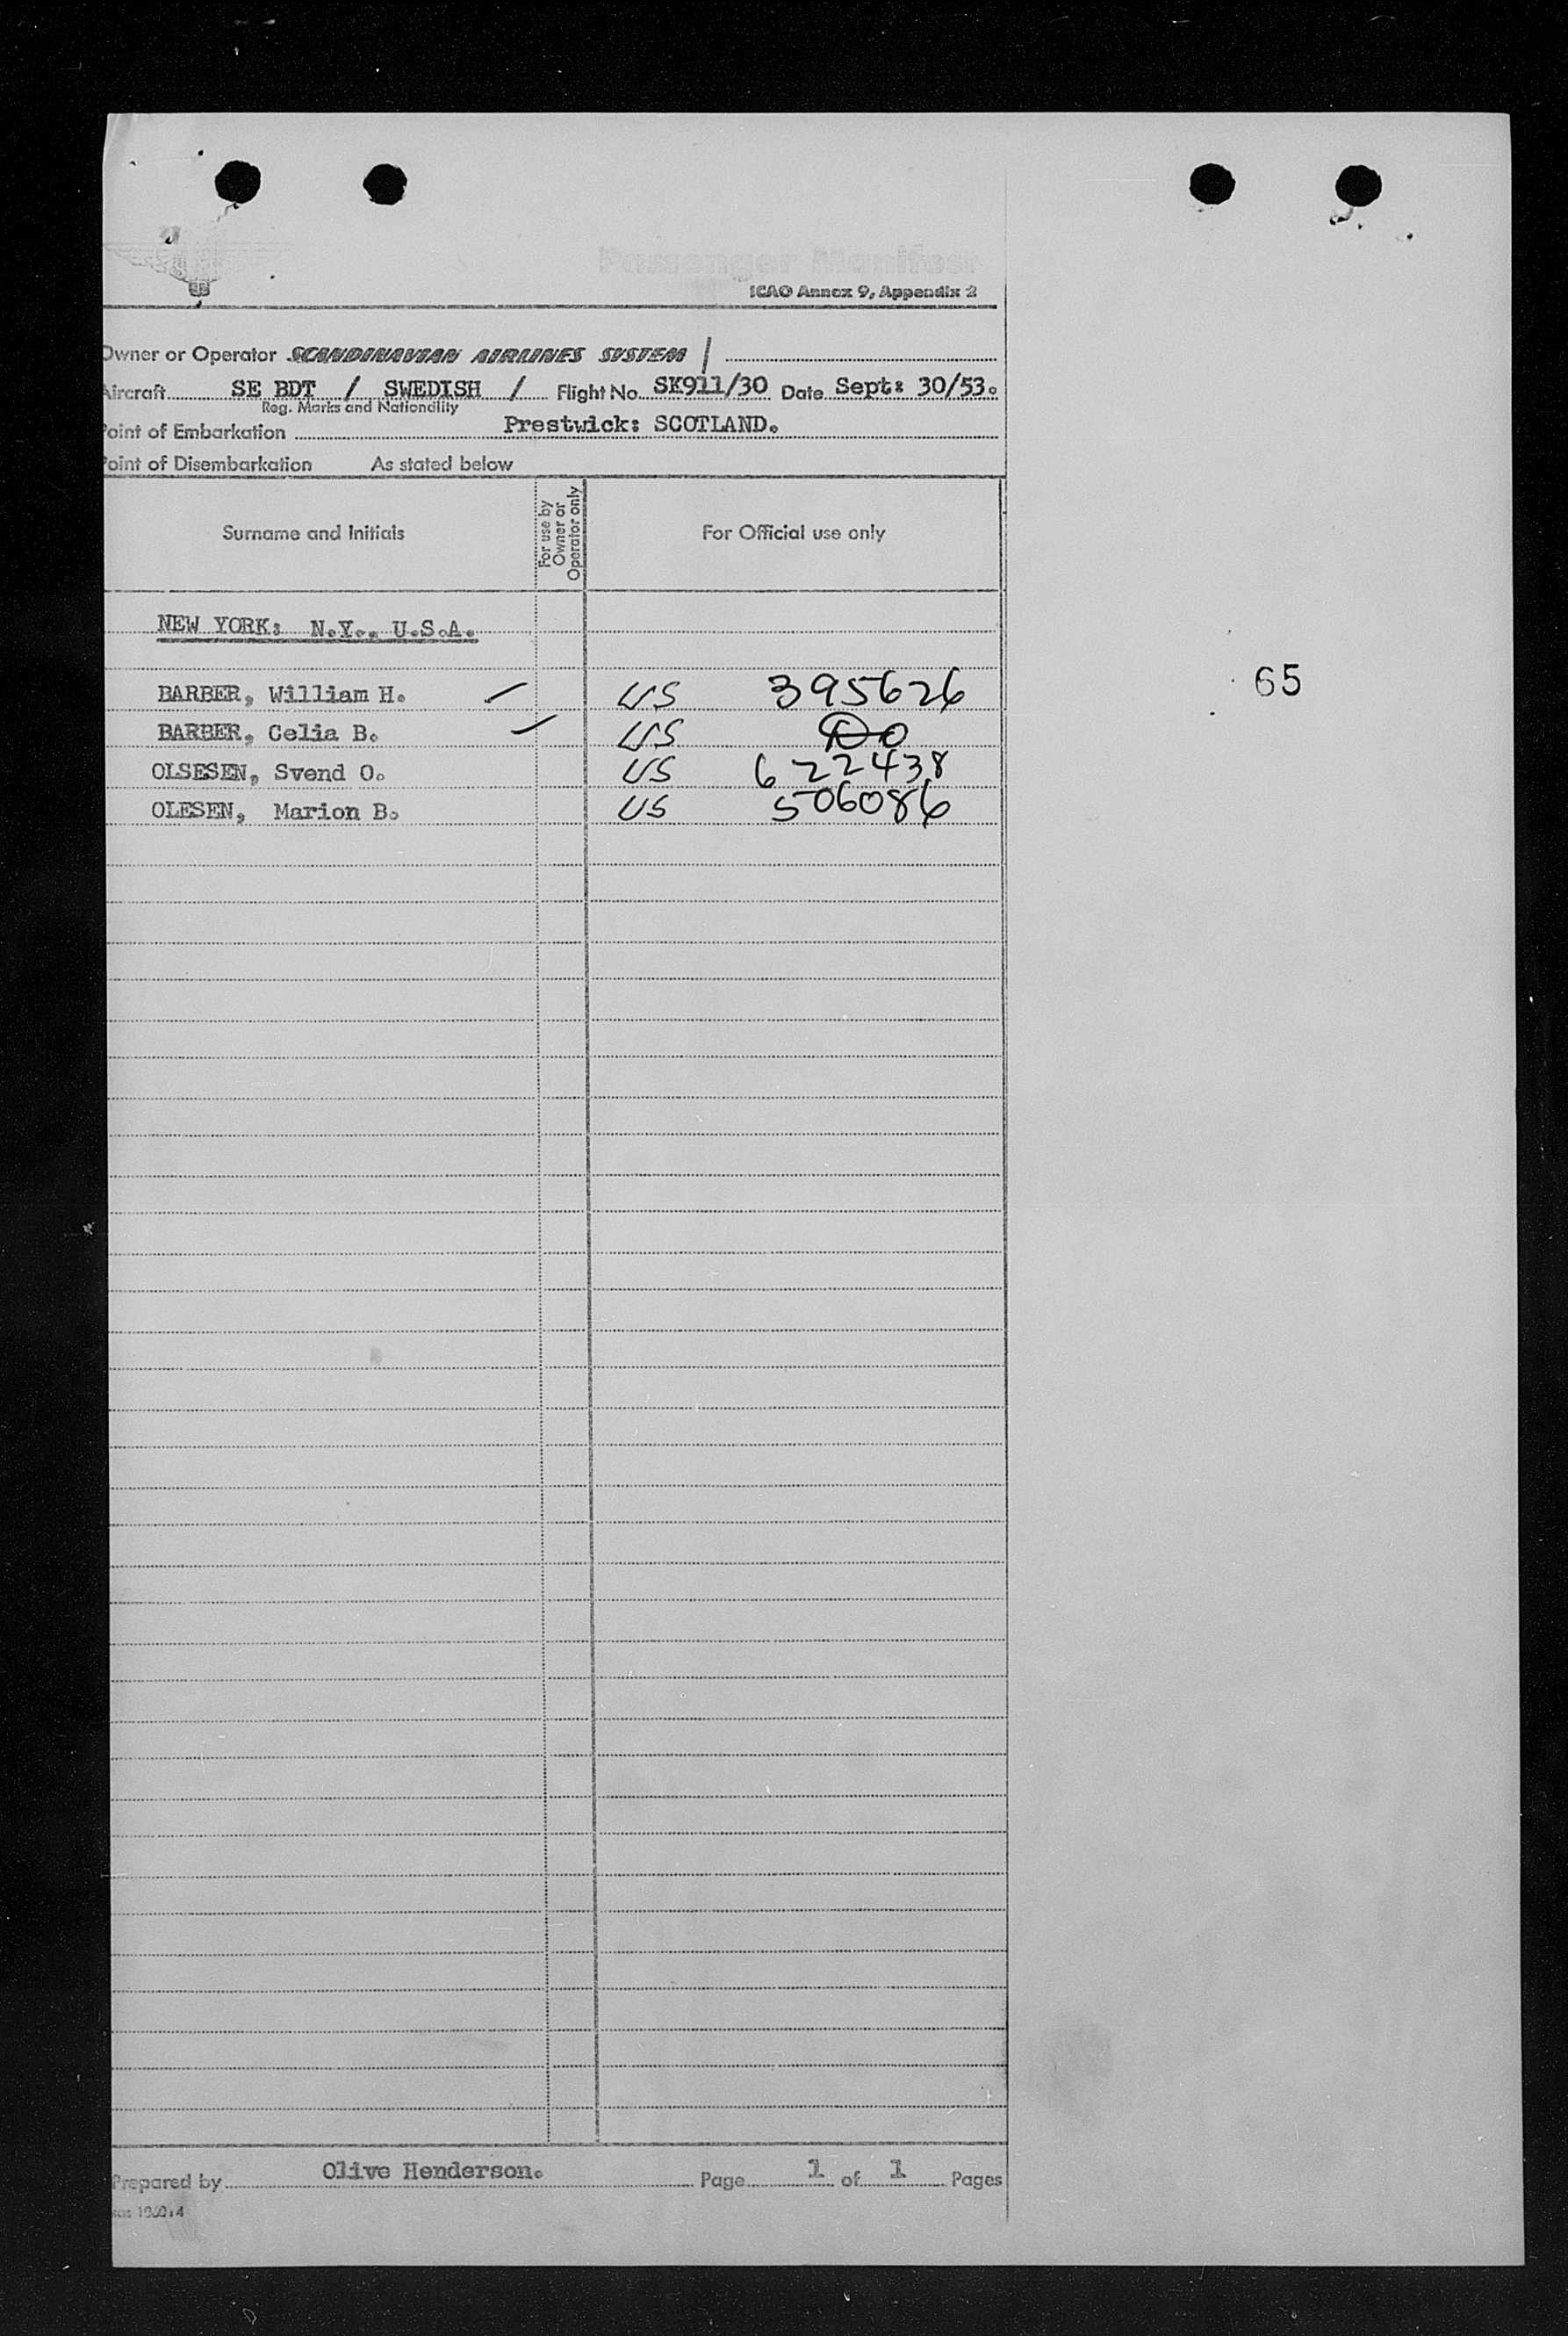 Passenger Manifest
ICAO Annex 9, Appendix 2
Owner or Operator SCANDINAVIAN AIRLINES SYSTEM /
Aircraft SE BDT / SWEDISH / Flight No. SK911/30 Date Sept: 30/53.
Reg. Marks and Nationality
Point of Embarkation Prestwick: SCOTLAND.
Point of Disembarkation As stated below
Surname and Initials For use by Owner or Operator only For Official use only
NEW YORK: N.Y., U.S.A.
BARBER, William H. US 395626
65
BARBER, Celia B. US Do
OLSESEN, Svend O. US 622438
OLESEN, Marion B. US 506086
Prepared by Olive Henderson. Page 1 of 1 Pages